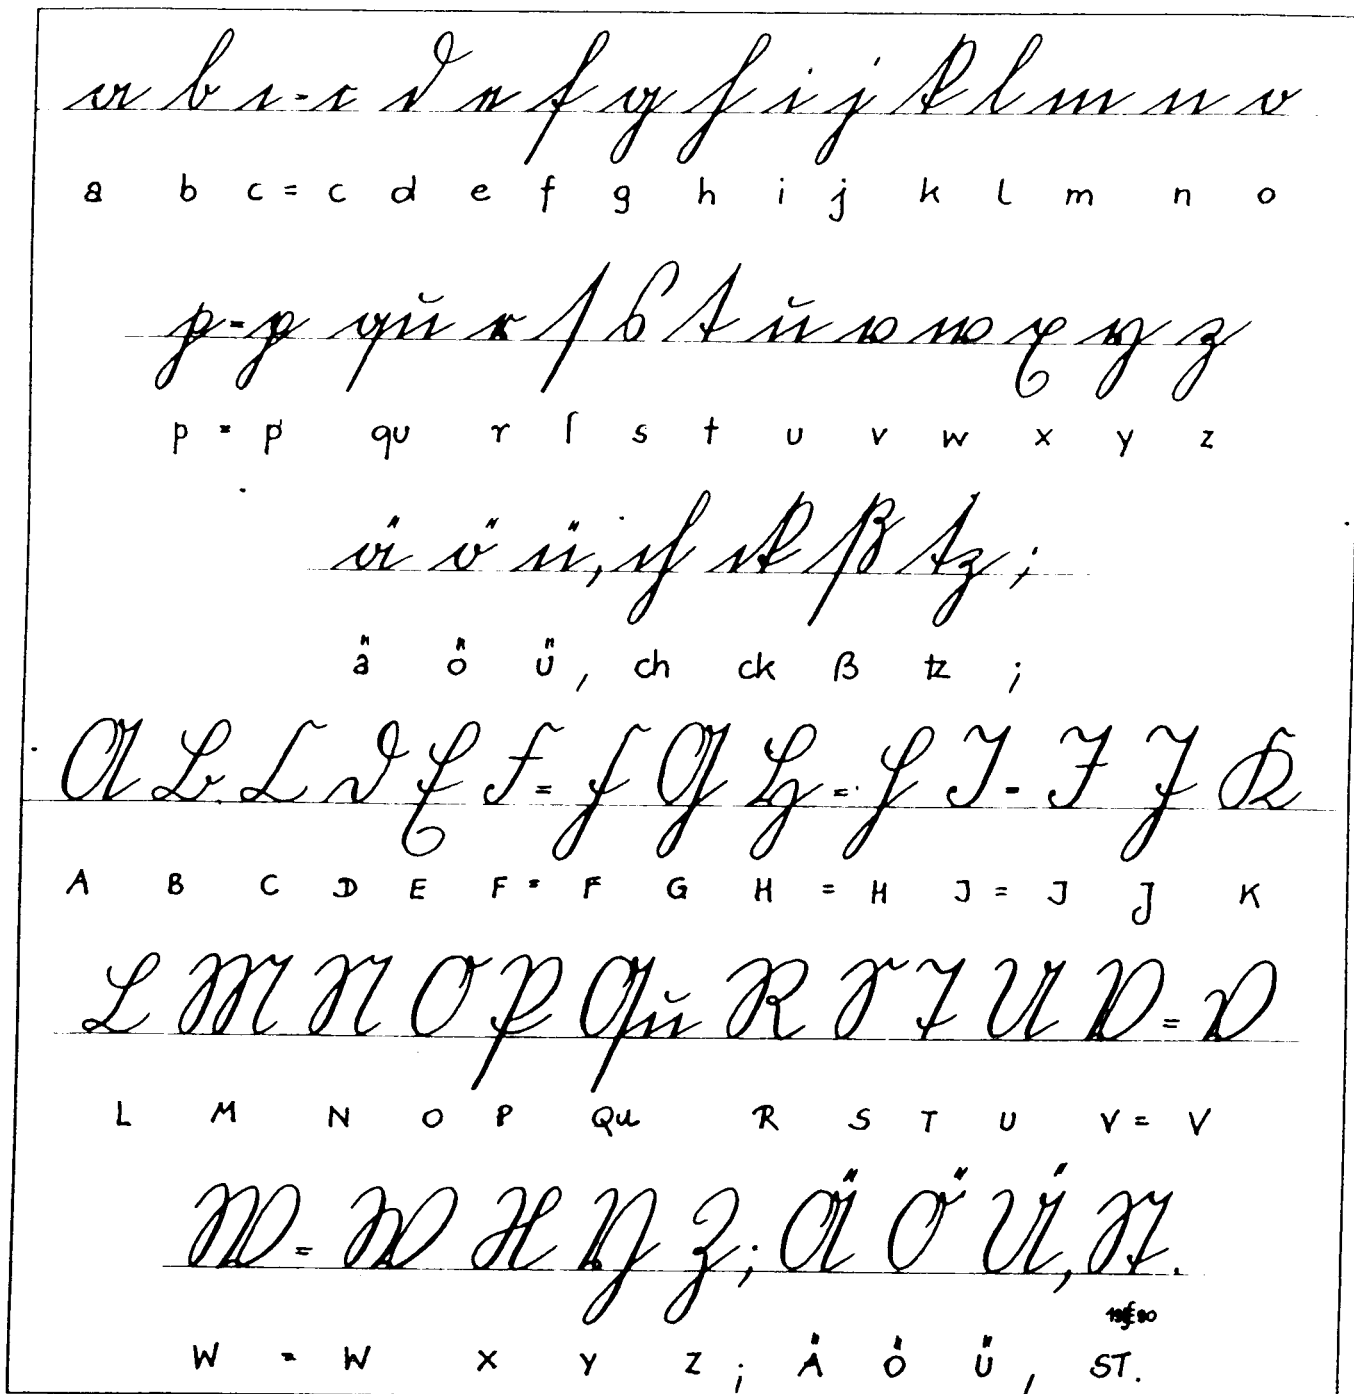 a b c - c d e f g h i j k l m n o
a b c = c d e f g h i j k l m n o
p = p qu r ſ s t u v w x y z
p = p qu r ſ s t u v w x y z
ä ö ü, ch ck ß tz ;
ä ö ü , ch ck ß tz ;
A B C D E F = F G H = H J - J J K
A B C D E F = F G H = H J = J J K
L M N O P Qu R S T U V = V
L M N O P Qu R S T U V = V
W = W X Y Z ; Ä Ö Ü, St.
W = W X Y Z ; Ä Ö Ü , ST.